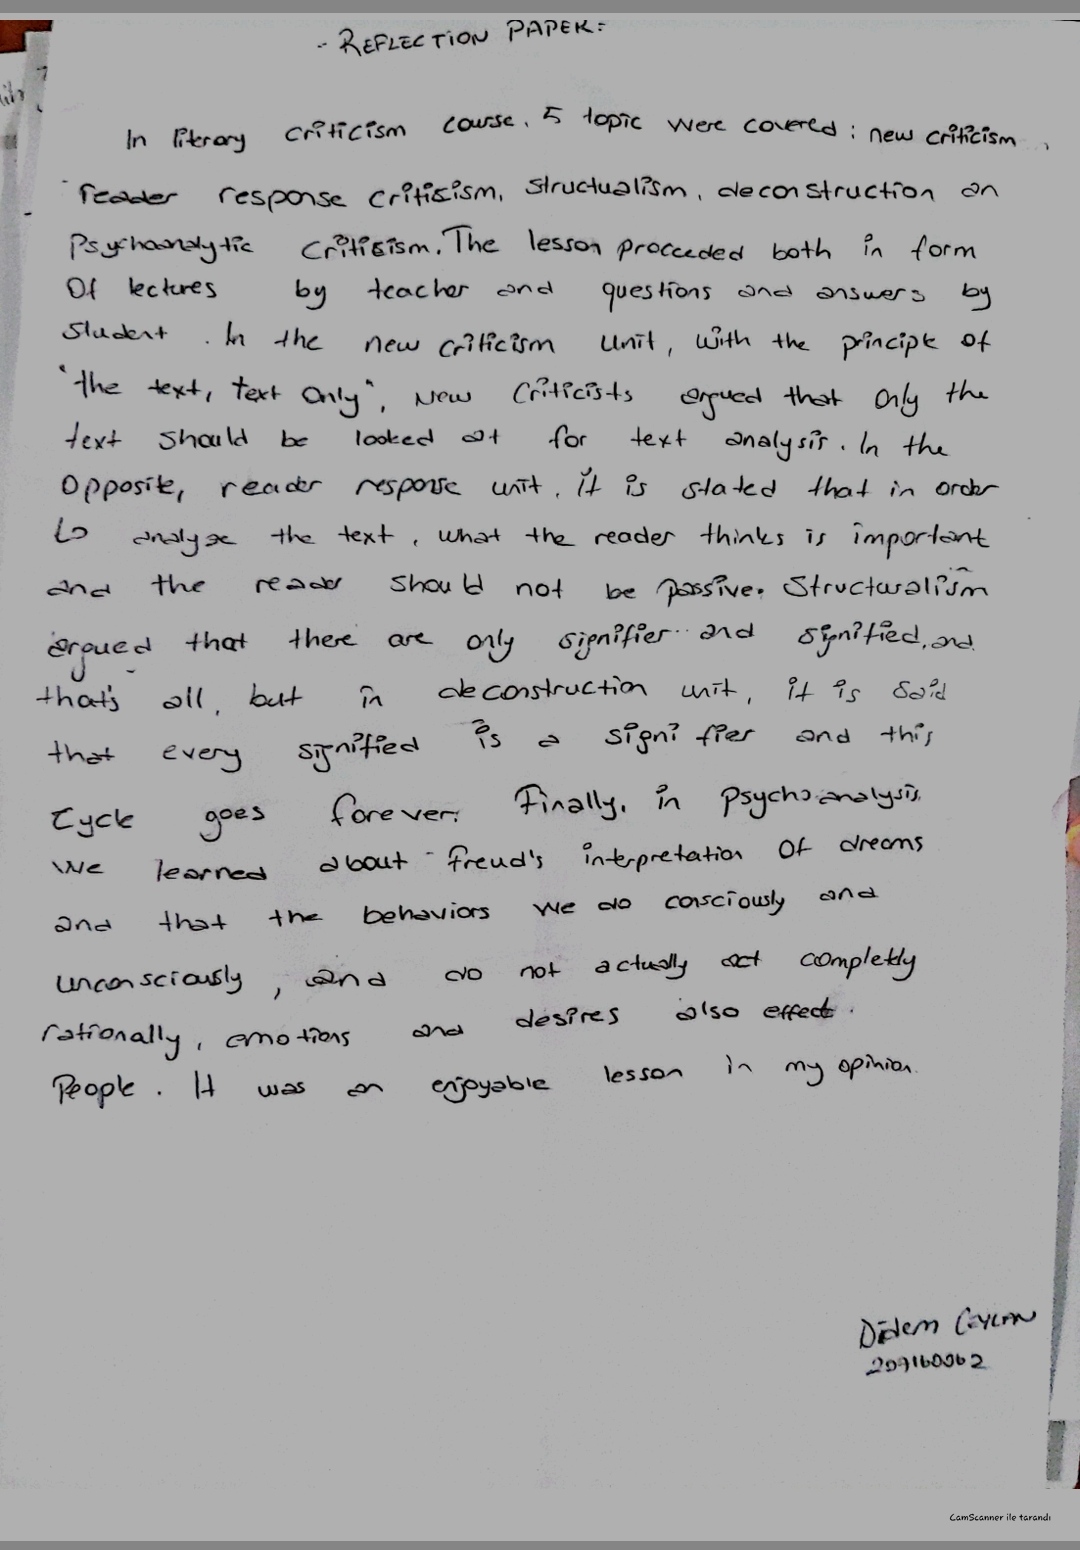 - REFLECTION PAPER:
In literary criticism course, 5 topic were covered : new criticism,
reader response criticism, structualism, deconstruction an
Psychoanalytic criticism. The lesson proceeded both in form
Of lectures by teacher and questions and answers by
student. In the new criticism unit, with the principle of
"the text, text only", New Criticists argued that only the
text should be looked at for text analysis. In the
Opposite, reader response unit, it is stated that in order
to analyze the text, what the reader thinks is important
and the reader should not be passive. Structuralism
argued that there are only signifier and signified, and
that's all, but in deconstruction unit, it is said
that every signified is a signifier and this
Cycle goes forever. Finally, in psychoanalysis,
We learned about Freud's interpretation Of dreams
and that the behaviors we do consciously and
unconsciously, and do not actually act completely
rationally, emotions and desires also effect
People. It was an enjoyable lesson in my opinion.
Didem CEYLAN
CamScanner ile tarandı